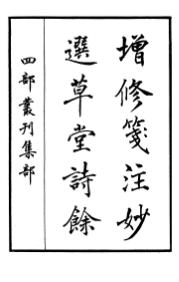 增修箋注妙
選草堂詩餘
四部叢刊集部